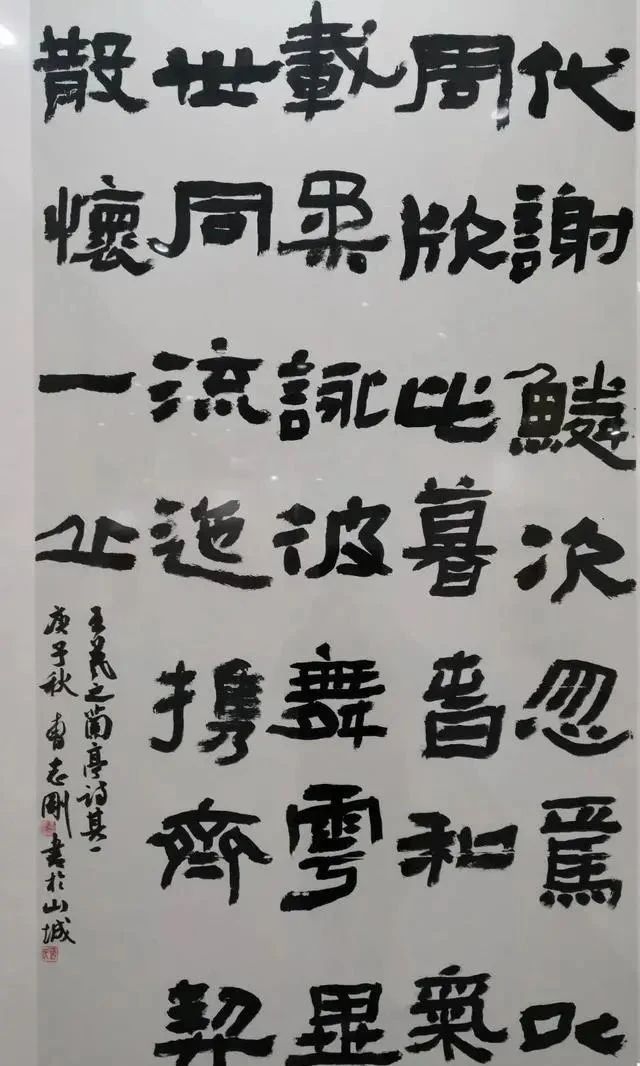 代謝鱗次忽焉以
周欣此暮春和氣
載柔詠彼舞雩異
世同流迤携齊契
散懷一丘
王羲之蘭亭詩其一
庚子秋曹志剛書於山城